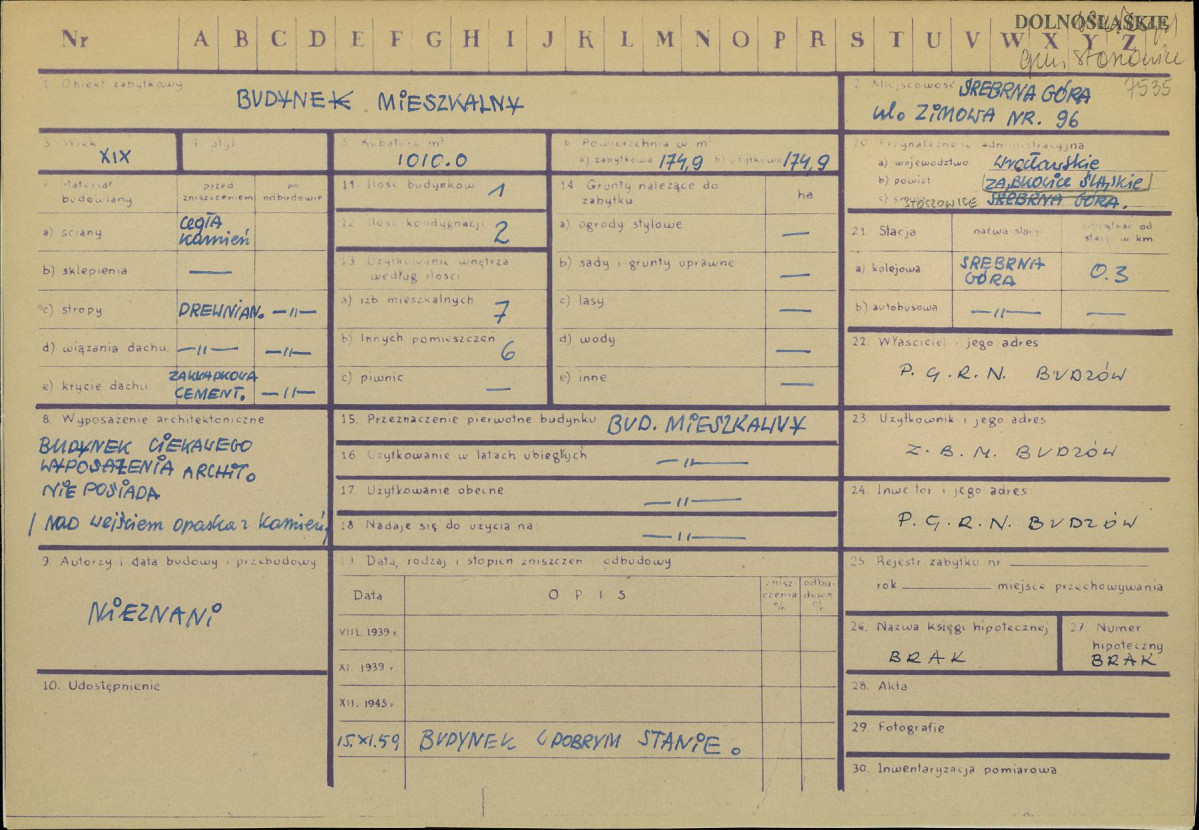 DOLNOŚLĄSKIE
Nr A B C D E F G H I J K L M N O P R S T U V W X Y Z
gm. Stoszowice
7535
1. Obiekt zabytkowy
BUDYNEK MIESZKALNY
2. Miejscowość SREBRNA GÓRA
ul. ZIMOWA NR. 96
3. Wiek
XIX
4. Styl
5. Kubatura m³
1010.0
6. Powierzchnia w m²
a) zabytkowa 174,9 b) użytkowa 174,9
7. Materiał budowlany
przed zniszczeniem
po odbudowie
a) ściany
CEGŁA
Kamień
b) sklepienia —
c) stropy DREWNIAN. —"—
d) wiązania dachu —"— —"—
e) krycie dachu
ZAKŁADKOWA
CEMENT. —"—
11. Ilość budynków 1
12. Ilość kondygnacji 2
13. Użytkowanie wnętrza
według ilości
a) izb mieszkalnych 7
b) innych pomieszczeń 6
c) piwnic —
14. Grunty należące do
zabytku
ha
a) ogrody stylowe —
b) sady i grunty uprawne —
c) lasy —
d) wody —
e) inne —
20. Przynależność administracyjna
a) województwo wrocławskie
b) powiat ZĄBKOWICE ŚLĄSKIE
c) STOSZOWICE SREBRNA GÓRA.
21. Stacja
nazwa stacji
odległość od
stacji w km
a) kolejowa
SREBRNA
GÓRA
0.3
b) autobusowa —"— —
22. Właściciel i jego adres
P. G. R. N. BUDZÓW
8. Wyposażenie architektoniczne
BUDYNEK CIEKAWEGO
WYPOSAŻENIA ARCHIT.
NIE POSIADA
/ NAD wejściem opaska z kamień/
15. Przeznaczenie pierwotne budynku BUD. MIESZKALNY
16. Użytkowanie w latach ubiegłych —"—
17. Użytkowanie obecne —"—
18. Nadaje się do użycia na: —"—
23. Użytkownik i jego adres
Z. B. M. BUDZÓW
24. Inwestor i jego adres:
P. G. R. N. BUDZÓW
9. Autorzy i data budowy i przebudowy
NIEZNANI
10. Udostępnienie
19. Data, rodzaj i stopień zniszczeń i odbudowy
Data
O P I S
znisz-
czenia
%
odbu-
dowa
%
VIII. 1939 r.
XI. 1939 r.
XII. 1945 r.
15.XI.59 BUDYNEK W DOBRYM STANIE.
25. Rejestr zabytku nr
rok miejsce przechowywania
26. Nazwa księgi hipotecznej
BRAK
27. Numer
hipoteczny
BRAK
28. Akta
29. Fotografie
30. Inwentaryzacja pomiarowa